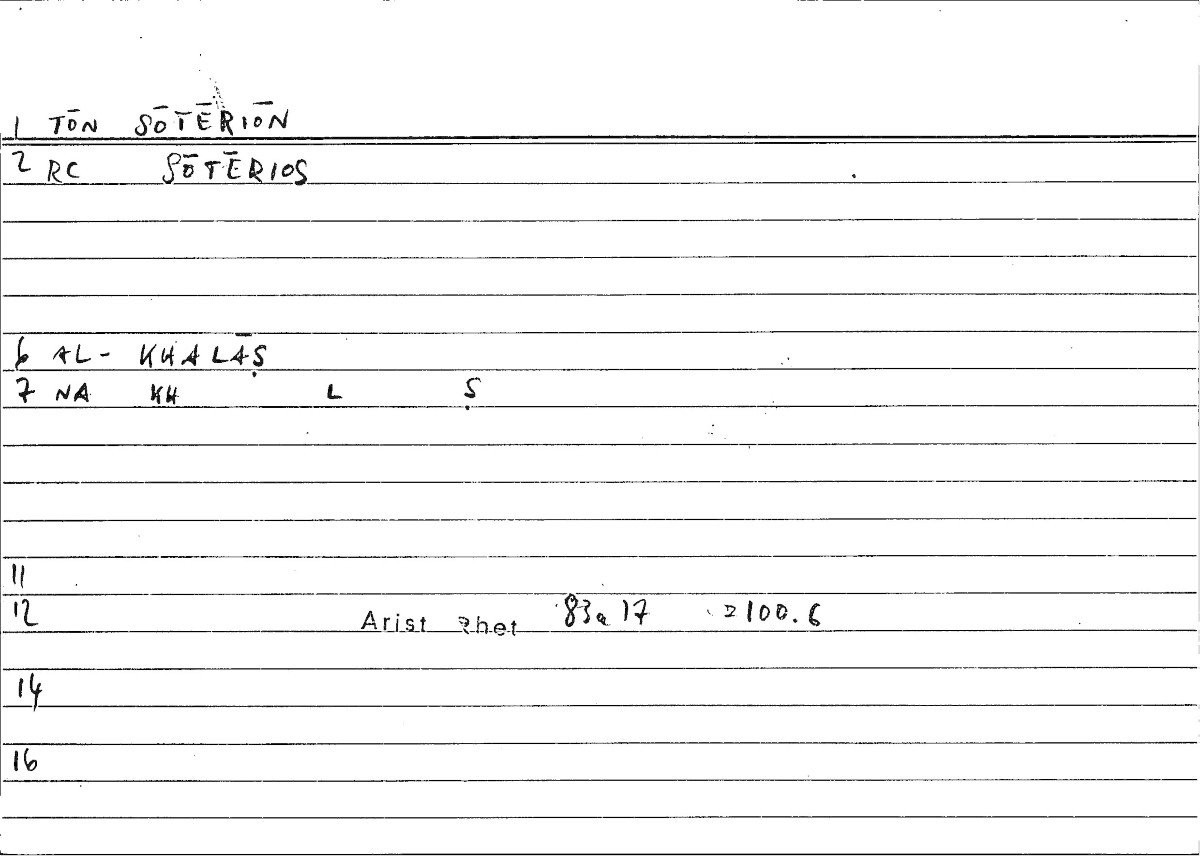 1 TŌN SŌTĒRIŌN
2 RC SŌTĒRIOS
6 AL- KHALĀṢ
7 NA KH L Ṣ
11
12 Arist Rhet 83a 17 = 100.6
14
16